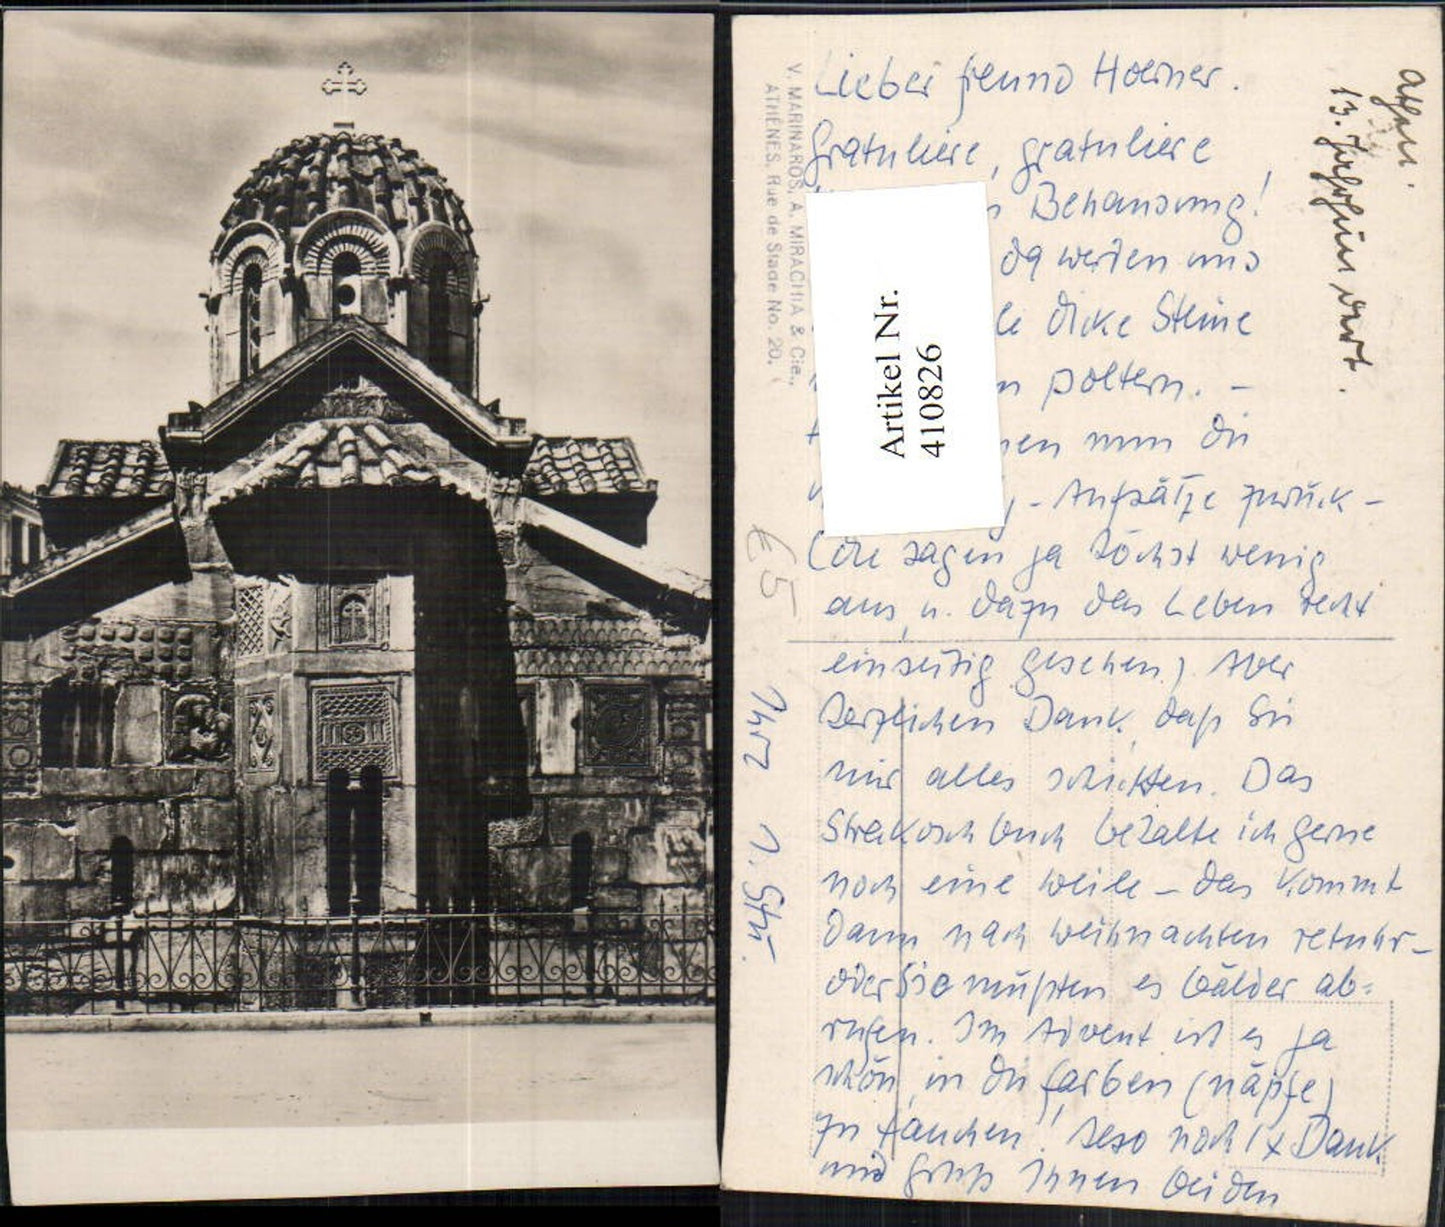 Lieber Freund Hoerner.
Gratuliere, gratuliere
Behausung!
da werden uns
dicke Steine
poltern. –
nun die
- Aufsätze zurück -
(die sagen ja höchst wenig
aus, u. dazu das Leben recht
einseitig gesehen.) Aber
herzlichen Dank, daß Sie
mir alles schickten. Das
Strakoschbuch behalte ich gerne
noch eine Weile – das kommt
dann nach Weihnachten retour –
oder Sie müßten es bälder ab=
rufen. Im Advent ist es ja
schön, in die Farben (näpfe)
zu tauchen! Also noch 1x Dank
und Gruß Ihnen beiden
Ihr
Athen.
13. Jahrhundert.
V. MARINAROS, A. MIRACHIA & Cie.,
ATHÈNES, Rue de Stade No. 20.
Artikel Nr.
410826
€ 5